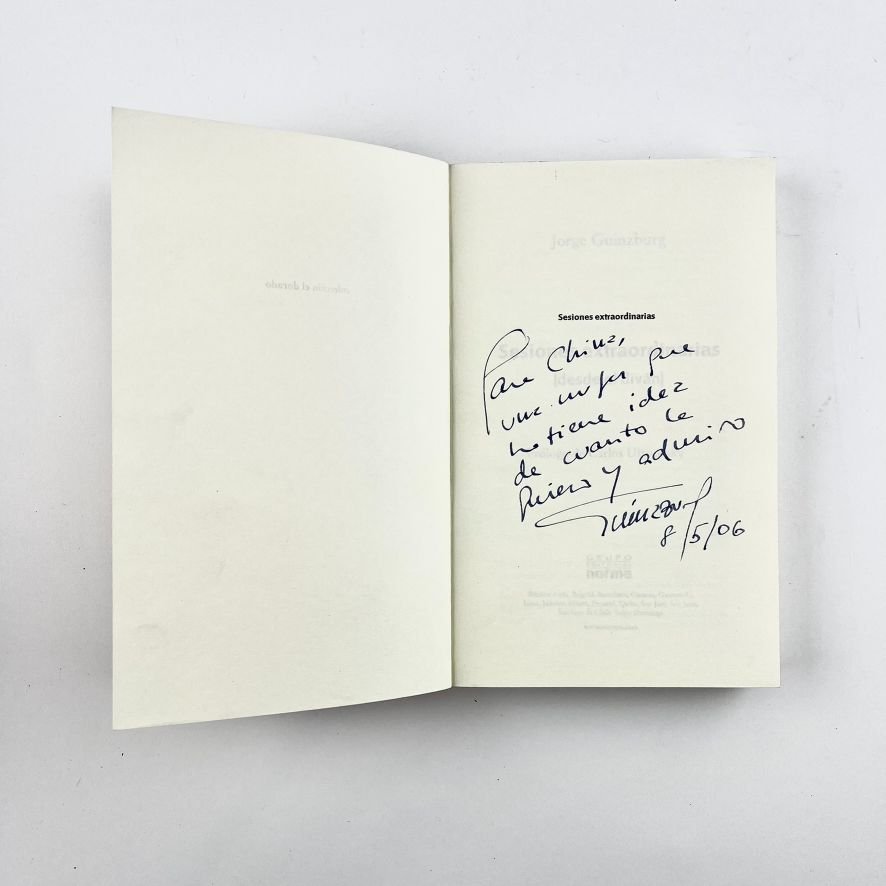 colección el dorado
Jorge Guinzburg
Sesiones extraordinarias
Sesiones extraordinarias
(desde el diván)
Para China,
una mujer que
no tiene idea
de cuanto la
Quiero y admiro
Guinzburg
8/5/06
GRUPO
EDITORIAL
norma